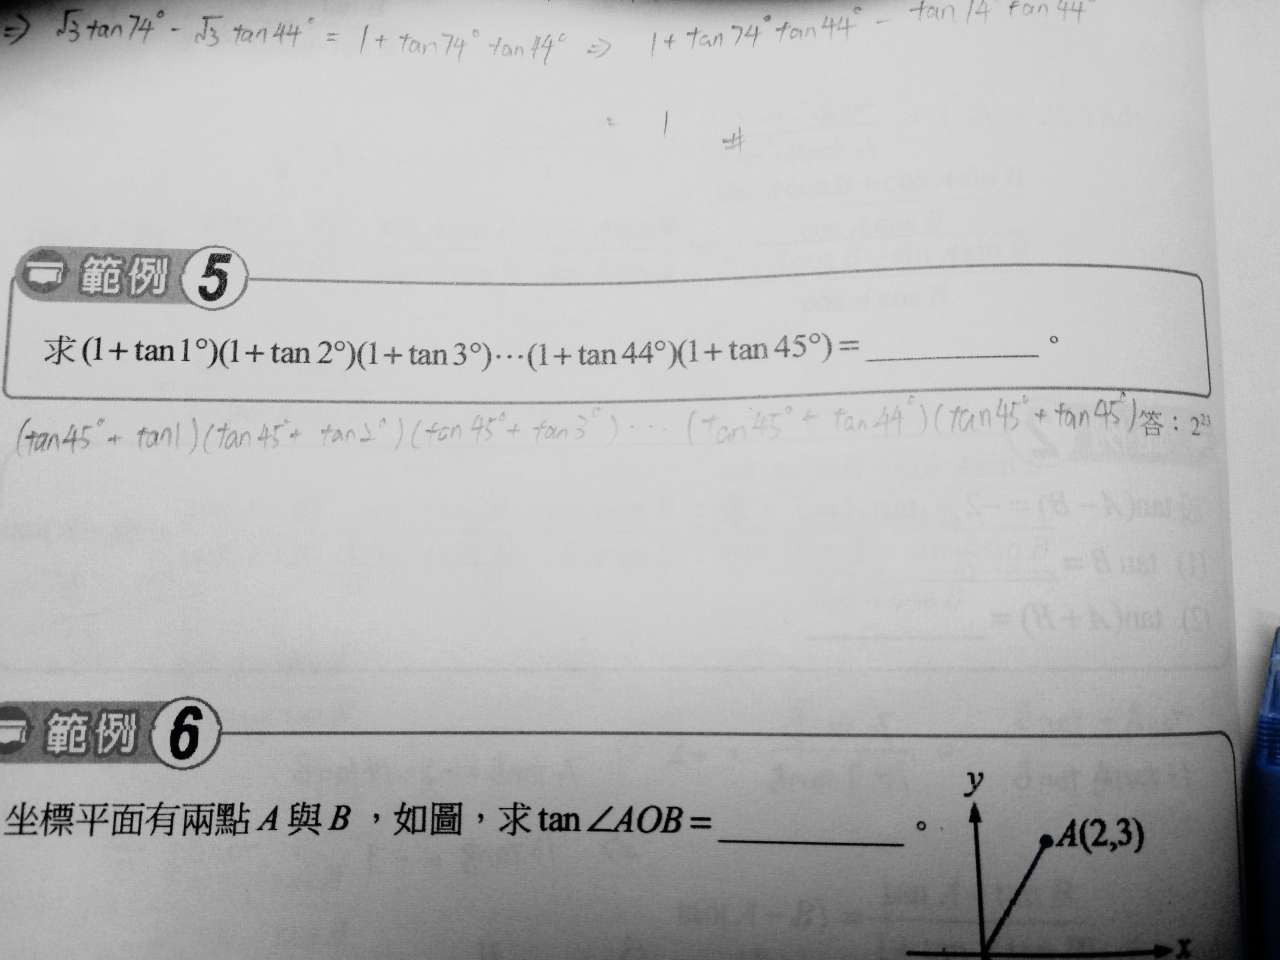 ⇒ √3 tan74° - √3 tan44° = 1 + tan74° tan44° ⇒ 1 + tan74° tan44° - tan74° tan44°
= 1 #
範例 5
求(1+tan1°)(1+tan2°)(1+tan3°)⋯(1+tan44°)(1+tan45°)=__________。
(tan45°+ tan1)(tan45°+ tan2°)(tan45°+ tan3°)⋯(tan45°+ tan44°)(tan45°+ tan45°)
答：2²³
範例 6
坐標平面有兩點A與B，如圖，求tan∠AOB=__________。
y
A(2,3)
x